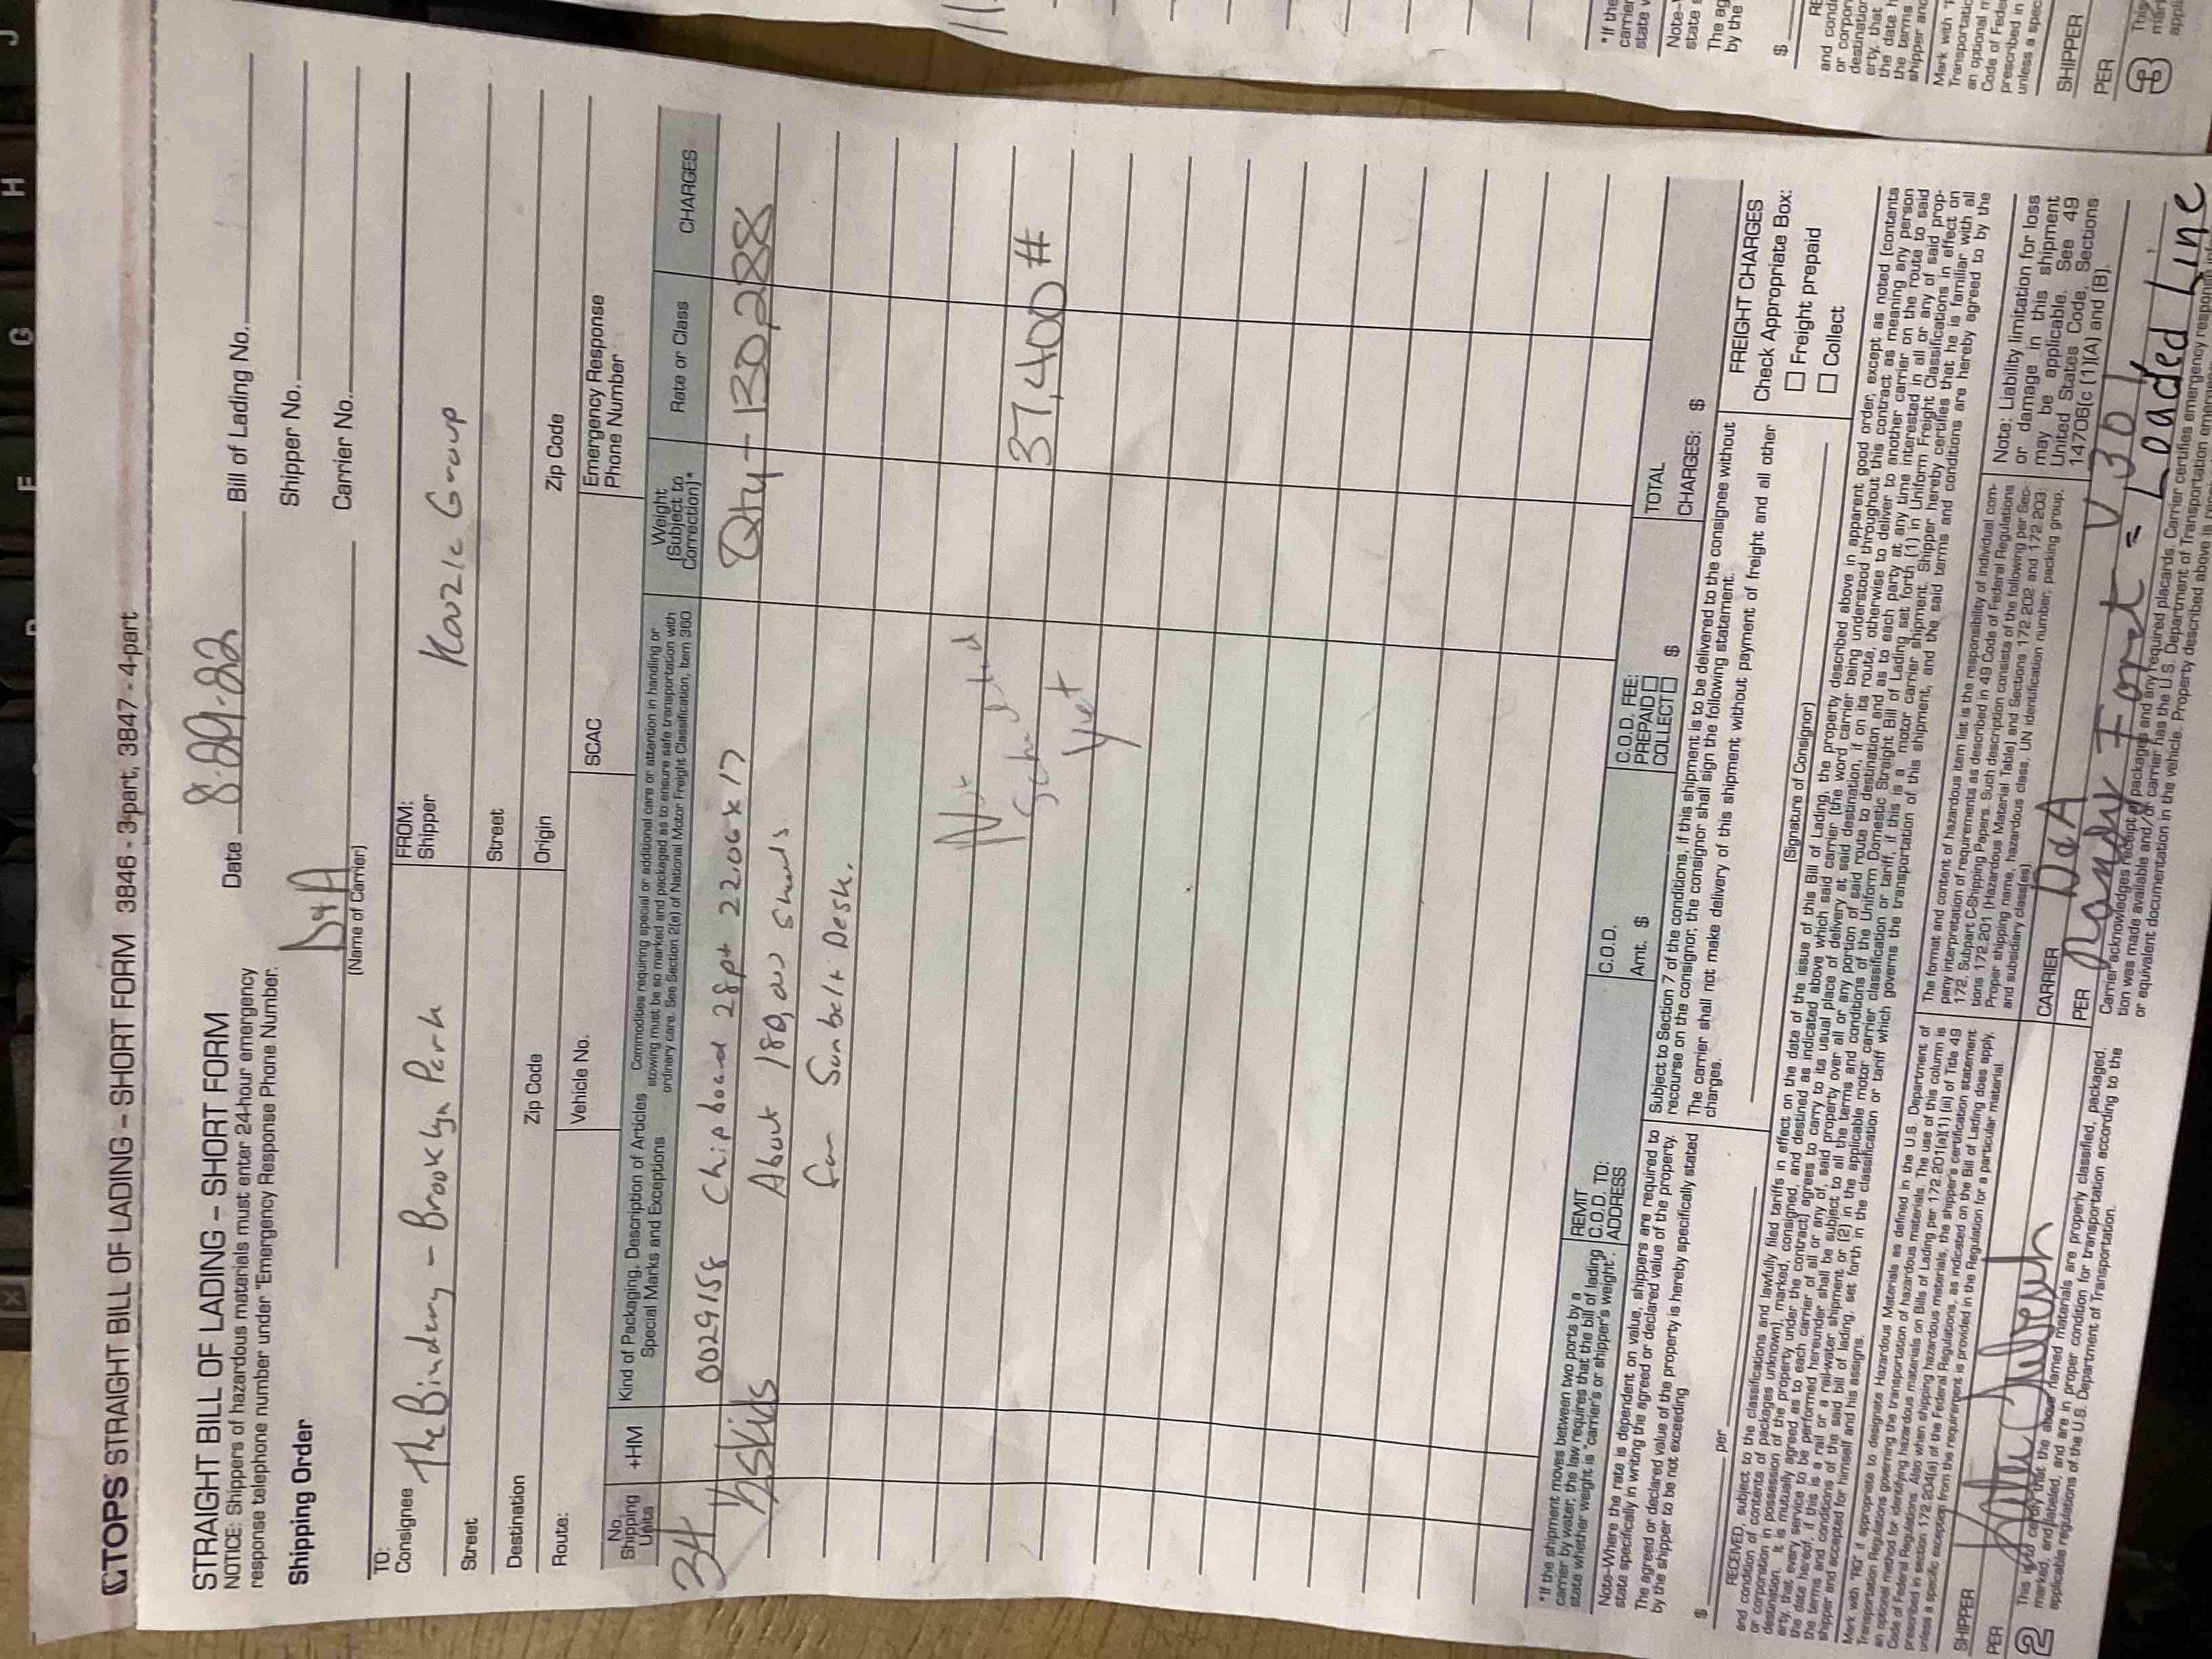 TOPS STRAIGHT BILL OF LADING – SHORT FORM 3846 - 3-part, 3847 - 4-part
STRAIGHT BILL OF LADING – SHORT FORM
NOTICE: Shippers of hazardous materials must enter 24-hour emergency
response telephone number under "Emergency Response Phone Number.
Shipping Order
Date 8-29-22
Bill of Lading No.
Shipper No.
Carrier No.
(Name of Carrier)
TO:
Consignee The Bindery - Brooklyn Park
Street
Destination
Zip Code
Route:
Vehicle No.
FROM:
Shipper Kazic Group
Street
Origin
Zip Code
SCAC
Emergency Response
Phone Number
No.
Shipping
Units
+HM
Kind of Packaging, Description of Articles
Special Marks and Exceptions
Commodities requiring special or additional care or attention in handling or
stowing must be so marked and packaged as to ensure safe transportation with
ordinary care. See Section 2(e) of National Motor Freight Classification, Item 360
Weight
(Subject to
Correction)*
Rate or Class
CHARGES
34 0029158 Chipboard 28pt 22.06x17 Qty- 130,288
Skids About 180,000 sheets
for Sunbelt Desk.
Not
Yet
37,400 #
*If the shipment moves between two ports by a
carrier by water, the law requires that the bill of lading
state whether weight is "carrier's or shipper's weight".
REMIT
C.O.D. TO:
ADDRESS
Note-Where the rate is dependent on value, shippers are required to
state specifically in writing the agreed or declared value of the property.
The agreed or declared value of the property is hereby specifically stated
by the shipper to be not exceeding
$ per
C.O.D.
Amt. $
C.O.D. FEE:
PREPAID
COLLECT $
TOTAL
CHARGES: $
Subject to Section 7 of the conditions, if this shipment is to be delivered to the consignee without
recourse on the consignor, the consignor shall sign the following statement.
The carrier shall not make delivery of this shipment without payment of freight and all other
charges.
(Signature of Consignor)
FREIGHT CHARGES
Check Appropriate Box:
Freight prepaid
Collect
RECEIVED, subject to the classifications and lawfully filed tariffs in effect on the date of the issue of this Bill of Lading, the property described above in apparent good order, except as noted (contents
and condition of contents of packages unknown), marked, consigned, and destined as indicated above which said carrier (the word carrier being understood throughout this contract as meaning any person
or corporation in possession of the property under the contract) agrees to carry to its usual place of delivery at said destination, if on its route, otherwise to deliver to another carrier on the route to said
destination. It is mutually agreed as to each carrier of all or any of, said property over all or any portion of said route to destination and as to each party at any time interested in all or any of said prop-
erty, that every service to be performed hereunder shall be subject to all the terms and conditions of the Uniform Domestic Straight Bill of Lading set forth (1) in Uniform Freight Classifications in effect on
the date hereof, if this is a rail or a rail-water shipment, or (2) in the applicable motor carrier classification or tariff, if this is a motor carrier shipment. Shipper hereby certifies that he is familiar with all
the terms and conditions of the said bill of lading, set forth in the classification or tariff which governs the transportation of this shipment, and the said terms and conditions are hereby agreed to by the
shipper and accepted for himself and his assigns.
Mark with "RQ" if appropriate to designate Hazardous Materials as defined in the U.S. Department of
Transportation Regulations governing the transportation of hazardous materials. The use of this column is
an optional method for identifying hazardous materials on Bills of Lading per 172.201(a)(1) (iii) of Title 49
Code of Federal Regulations. Also when shipping hazardous materials, the shipper's certification statement
prescribed in section 172.204(a) of the Federal Regulations, as indicated on the Bill of Lading does apply,
unless a specific exception from the requirement is provided in the Regulation for a particular material.
The format and content of hazardous item list is the responsibility of individual com-
pany interpretation of requirements as described in 49 Code of Federal Regulations
172, Subpart C-Shipping Papers. Such description consists of the following per Sec-
tions 172.201 (Hazardous Material Table) and Sections 172.202 and 172.203:
Proper shipping name, hazardous class, UN identification number, packing group,
and subsidiary class(es).
Note: Liability limitation for loss
or damage in this shipment
may be applicable. See 49
United States Code, Sections
14706(c (1)(A) and (B).
SHIPPER
PER
2
This is to certify that the above named materials are properly classified, packaged,
marked, and labeled, and are in proper condition for transportation according to the
applicable regulations of the U.S. Department of Transportation.
CARRIER
PER
Carrier acknowledges receipt of packages and any required placards. Carrier certifies emergency
tion was made available and/or carrier has the U.S. Department of Transportation
or equivalent documentation in the vehicle. Property described above is
= Loaded Line
SHIPPER
PER
3